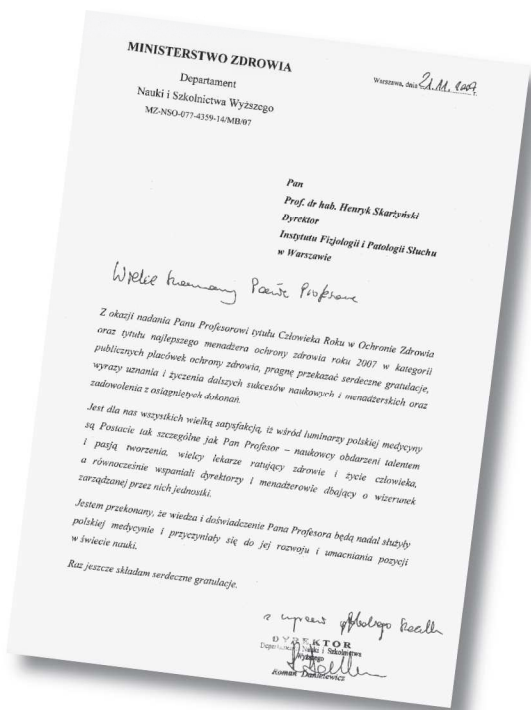 MINISTERSTWO ZDROWIA
Departament
Nauki i Szkolnictwa Wyższego
MZ-NSO-077-4359-14/MB/07
Warszawa, dnia 21.11.2007 r.
Pan
Prof. dr hab. Henryk Skarżyński
Dyrektor
Instytutu Fizjologii i Patologii Słuchu
w Warszawie
Wielce Szanowny Panie Profesorze
Z okazji nadania Panu Profesorowi tytułu Człowieka Roku w Ochronie Zdrowia
oraz tytułu najlepszego menadżera ochrony zdrowia roku 2007 w kategorii
publicznych placówek ochrony zdrowia, pragnę przekazać serdeczne gratulacje,
wyrazy uznania i życzenia dalszych sukcesów naukowych i menadżerskich oraz
zadowolenia z osiągniętych dokonań.
Jest dla nas wszystkich wielką satysfakcją, iż wśród luminarzy polskiej medycyny
są Postacie tak szczególne jak Pan Profesor – naukowcy obdarzeni talentem
i pasją tworzenia, wielcy lekarze ratujący zdrowie i życie człowieka,
a równocześnie wspaniali dyrektorzy i menadżerowie dbający o wizerunek
zarządzanej przez nich jednostki.
Jestem przekonany, że wiedza i doświadczenie Pana Profesora będą nadal służyły
polskiej medycynie i przyczyniały się do jej rozwoju i umacniania pozycji
w świecie nauki.
Raz jeszcze składam serdeczne gratulacje.
z wyrazami głębokiego
DYREKTOR
Departamentu Nauki i Szkolnictwa
Wyższego
Roman Danielewicz